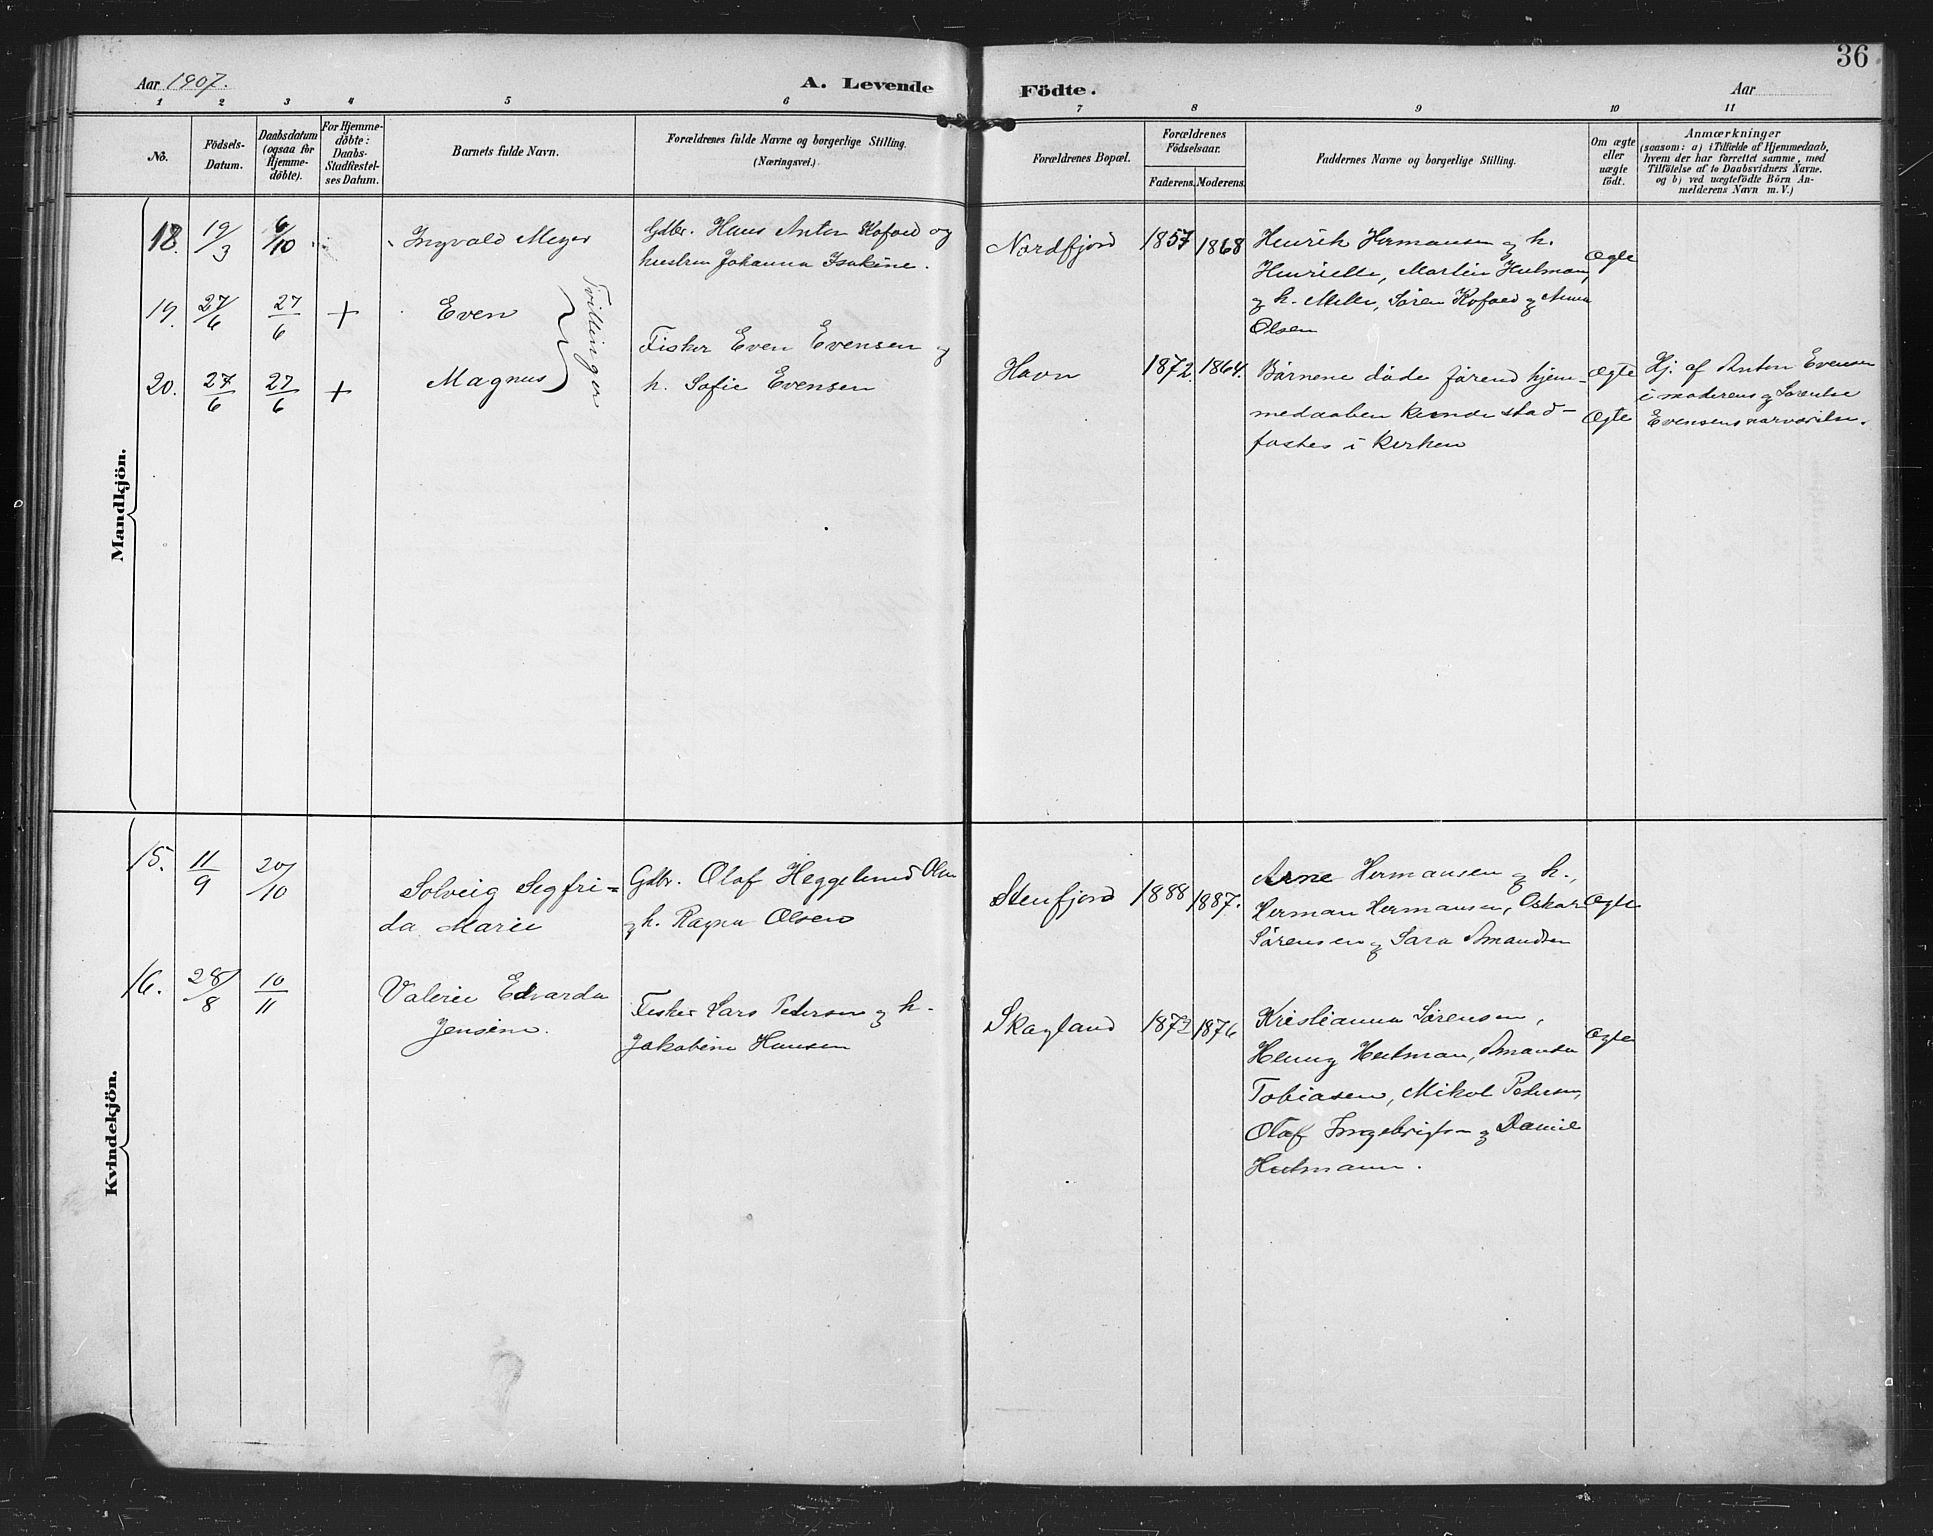 36
Aar 1907.
A. Levende Födte.
Aar
1 2 3 4 5 6 7 8 9 10 11
No.
Födsels-
Datum.
Daabsdatum
(ogsaa for
Hjemme-
döbte).
For Hjemme-
döbte:
Daabs-
Stadfæstel-
ses Datum.
Barnets fulde Navn.
Forældrenes fulde Navne og borgerlige Stilling.
(Næringsvei.)
Forældrenes Bopæl.
Forældrenes
Födselsaar.
Faderens. Moderens.
Faddernes Navne og borgerlige Stilling.
Om ægte
eller
uægte
födt.
Anmærkninger
(saasom: a) i Tilfælde af Hjemmedaab,
hvem der har forrettet samme, med
Tilföielse af to Daabsvidners Navne.
og b) ved uægtefödte Börn An-
melderens Navn m. V.)
Mandkjön.
18. 19/3 6/10 Ingvald Meyer
Gdbr. Hans Anton Kofoed og
hustru Johanna Isakine.
Nordfjord 1857 1868
Henrik Hermansen og h.
Henriette, Martin Hutman,
og h. Mille, Søren Kofoed og Anna
Olsen
Ægte
19. 27/6 27/6 + Even
Tvillinger
20. 27/6 27/6 + Magnus
Fisker Even Evensen og
h. Sofie Evensen
Havn 1872. 1864.
Børnene døde førend hjem-
medaaben kunde stad-
fæstes i kirken
Ægte
Ægte
Hj. af Anton Evensen
i moderens og
Evensens nærværelse.
Kvindekjön.
15. 11/9 20/10 Solveig Segfri=
da Marie
Gdbr. Olaf Heggelund Olsen
og h. Ragna Olsen
Stenfjord 1888 1887.
Arne Hermansen og h.,
Herman Hermansen, Oskar
Sørensen og Sara Amandsen
Ægte
16. 28/8 10/11 Valerie Edvarda
Jensine.
Fisker Lars Pedersen og h.
Jakobine Hansen
Skagland 1873 1876
Kristianna Sørensen,
Henny Hutman, Amanda
Tobiasen, Mikal Pedersen,
Olaf Ingebrigtsen og Daniel
Hutmann.
Ægte